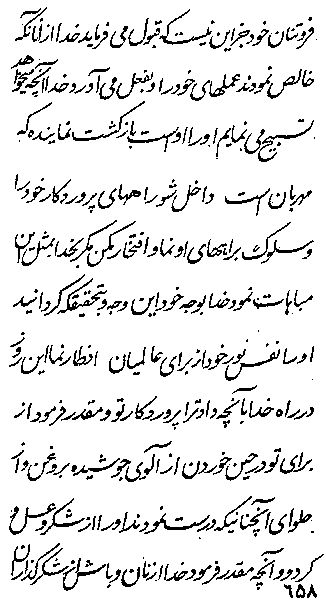 فروتنان خود جز این نیست که قبول می فرماید خدا از آنانکه
خالص نمودند عملهای خود را و بفعل می آورد خدا آنچه میخواهد
تسبیح می نمایم او را اوست بازگشت نماینده که
مهربان است داخل شو راههای پروردگار خود را
و سلوک براههای او نما و افتخار مکن مگر بخدا بمثل این
مباهات نمود خدا بوجه خود این وجه و بتحقیق که گردانید
او را نفس نور خود از برای عالمیان افطار نما این روز
در راه خدا بآنچه داد ترا پروردگار تو و مقدر فرمود از
برای تو در حین خوردن از آلوی جوشیده بروغن و از
حلوای آنچنانیکه درست نمودند او را از شکر و عسل و
کردو و آنچه مقدر فرمود خدا از نان و باش از شکرگذاران
٦٥٨